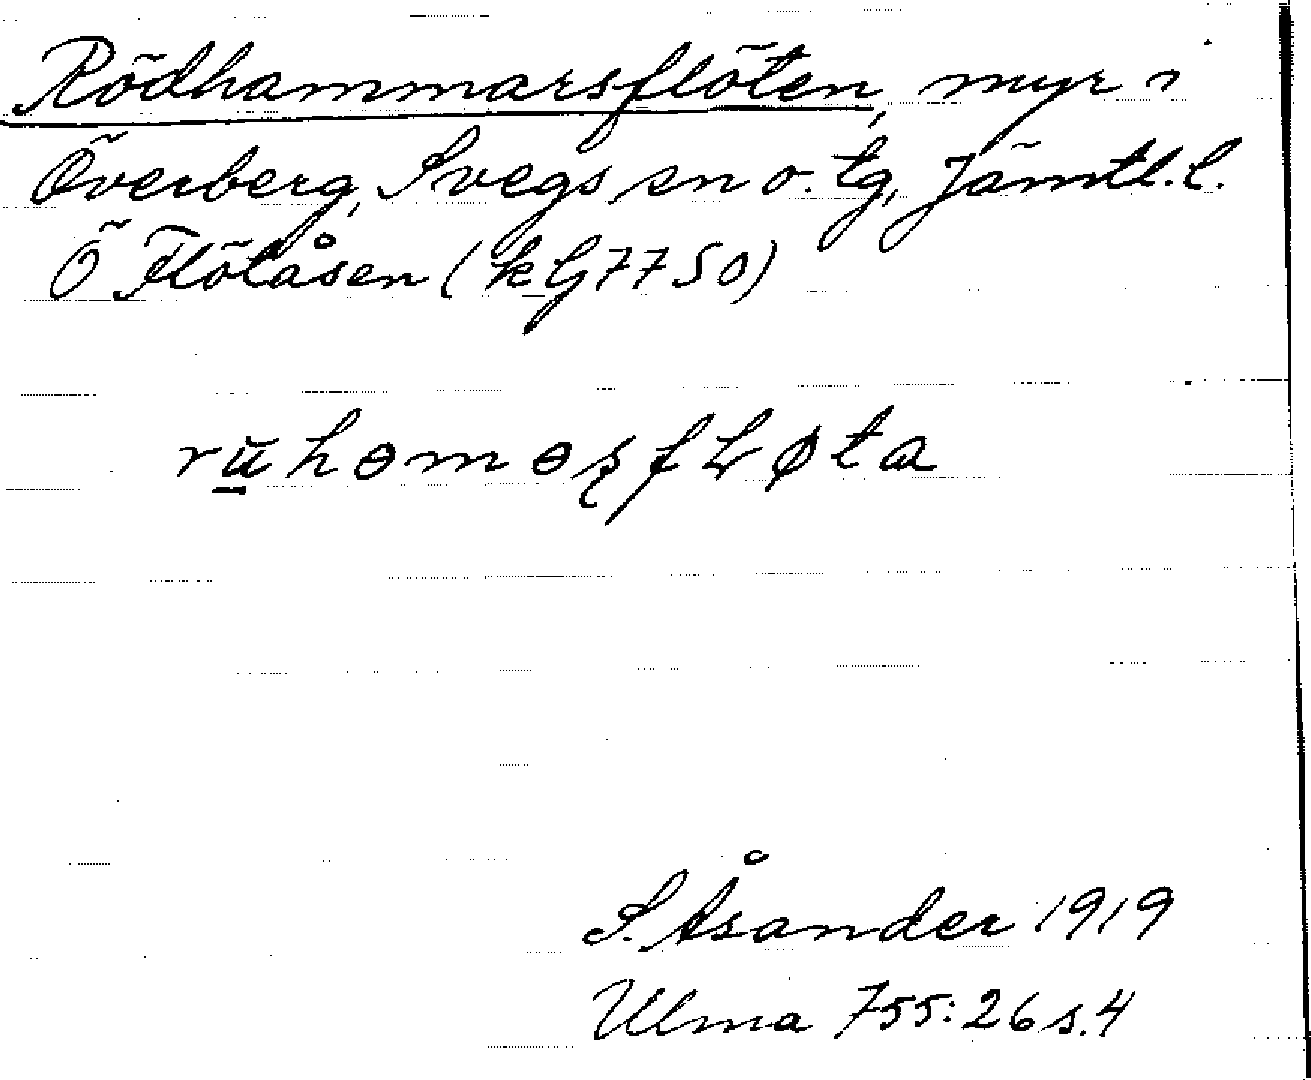 Rödhammarsflöten, myr i
Överberg, Svegs sn o. tg, Jämtl. l.
Ö Flötåsen (kG7750)
rūhɵmɵʂfⱡøta
S. Åsander 1919
Ulma 755:26 s.4